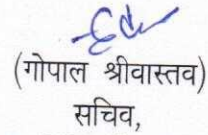 (गोपाल श्रीवास्तव)
सचिव,